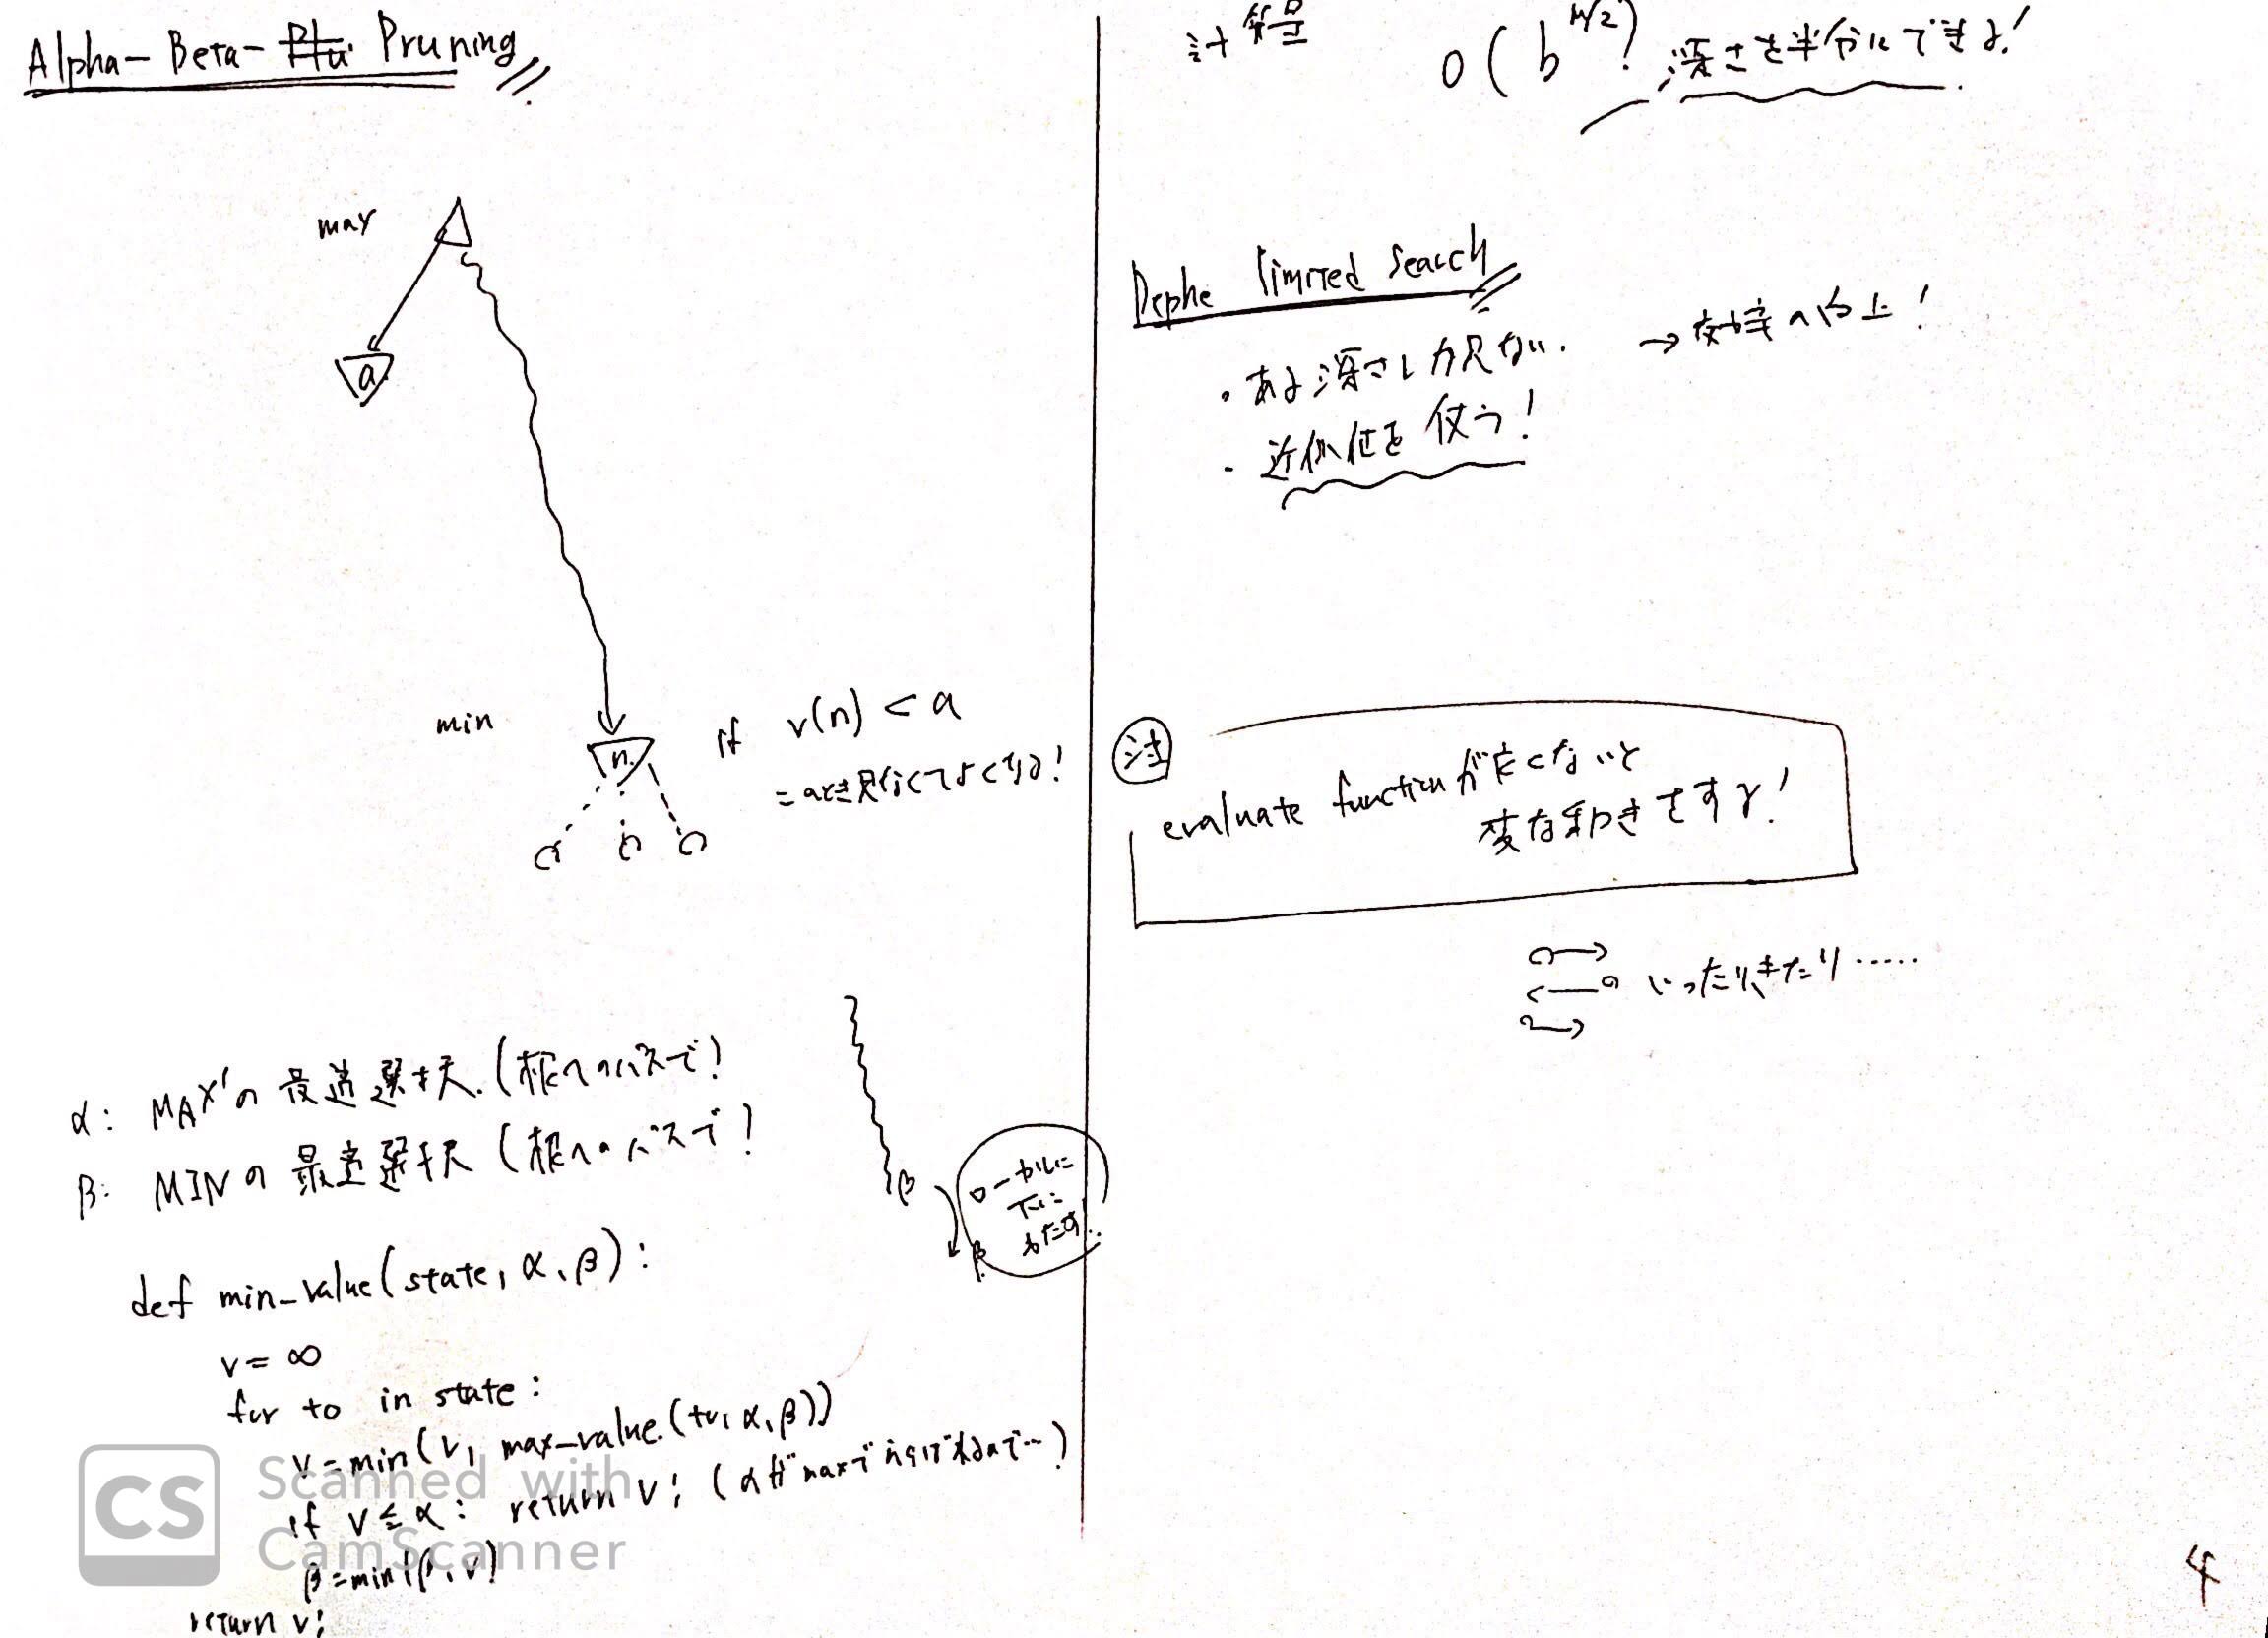 Alpha-Beta- Pruning
max
a
min
n
if v(n) < a
α: MAXの最適選択.(根へのパスで!
β: MINの最適選択(根へのパスで!
β
ローカルに
下に
わたす.
β
def min_value(state, α, β):
v = ∞
for to in state:
v = min(v, max_value.(to, α, β))
if v ≦ α: return v; (αがmaxで
β = min(β, v)
return v;
計算量 O(b^m/2) 深さを半分にできる!
Depthe limited search
・ある深さしか見ない. → 効率の向上!
・近似値を使う!
注
evaluate functionが良くないと
変な動きをする!
いったりきたり……
4
CS Scanned with
CamScanner